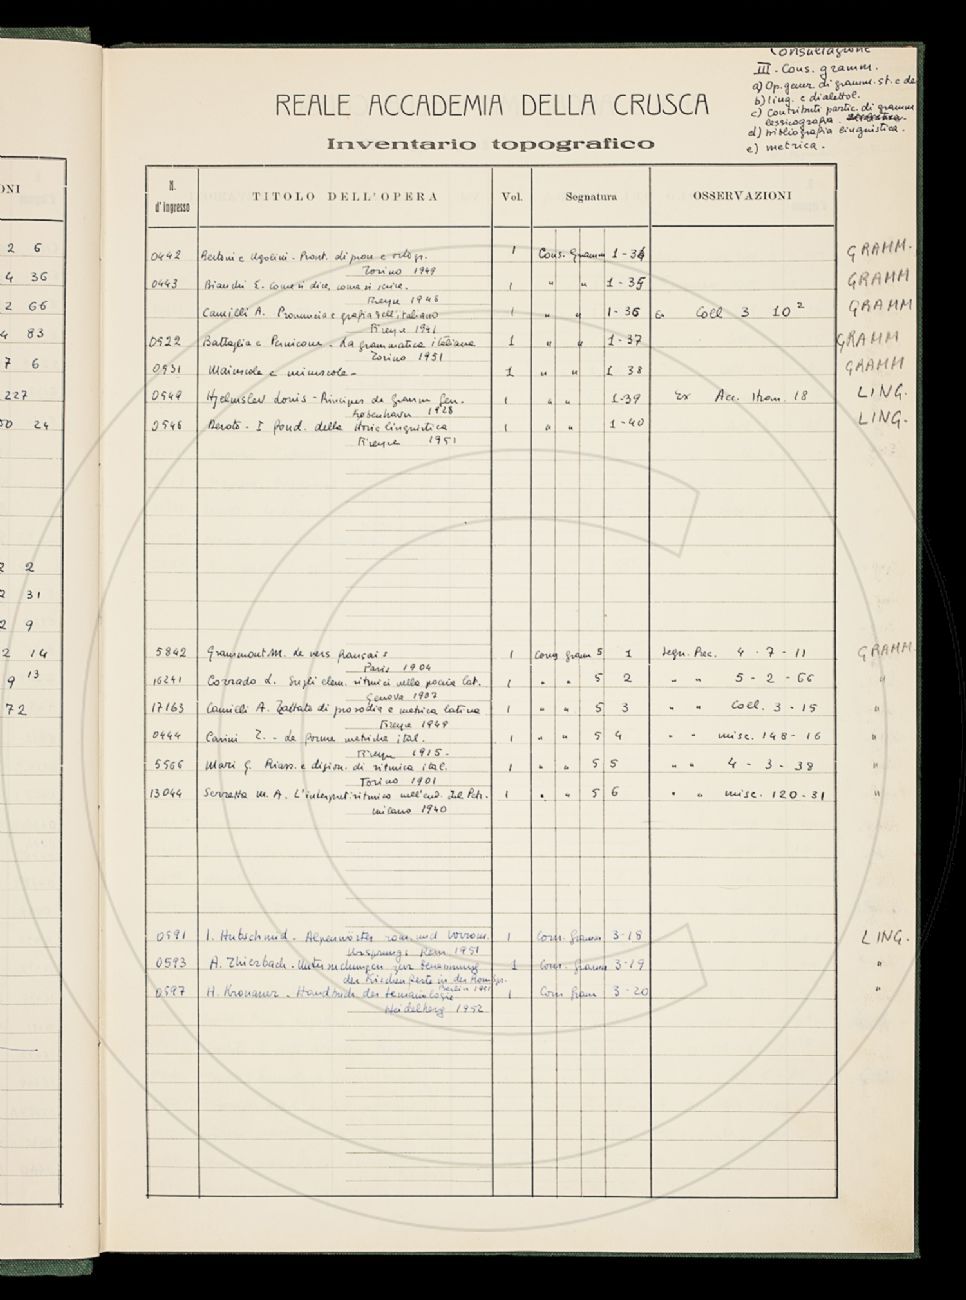 Consultazione
III. Cons. gramm.
a) Op. gener. di gramm. st. e de
b) ling. e dialettol.
c) Contributi partic. di gramm
lessicografia
d) bibliografia linguistica.
e) metrica.
REALE ACCADEMIA DELLA CRUSCA
Inventario topografico
ONI
N. d'ingresso TITOLO DELL'OPERA Vol. Segnatura OSSERVAZIONI
2 6
4 36
2 66
4 83
7 6
227
50 24
2 2
2 31
2 9
2 14
9 13
72
0442 Bertoni e Ugolini - Pront. di pron. e ortogr. 1 Cons. Gramm 1-34 GRAMM.
Torino 1949
0443 Bianchi E. Come si dice, come si scrive. 1 " " 1-35 GRAMM
Firenze 1948
Camilli A. Pronuncia e grafia dell'italiano 1 " " 1-36 Coll 3 10 2 GRAMM
Firenze 1941
0522 Battaglia e Pernicone - La grammatica italiana 1 " " 1-37 GRAMM
Torino 1951
0531 Maiuscole e minuscole - 1 " " 1 38 GRAMM
0549 Hjelmslev Louis - Principes de gramm gen. 1 " " 1-39 Ex Acc. Strom. 18 LING.
Kobenhavn 1928
0546 Devoto - I fond. della storia linguistica 1 " " 1-40 LING.
Firenze 1951
5842 Grammont M. Le vers français 1 Cons gramm 5 1 Segn. Prec. 4 - 7 - 11 GRAMM.
Paris 1904
16241 Corrado L. Sugli elem. ritmici nella poesia lat. 1 " " 5 2 " " 5 - 2 - 66 "
Genova 1907
17163 Camilli A. Trattato di prosodia e metrica latina 1 " " 5 3 " " Coll. 3 - 15 "
Firenze 1949
0444 Casini T. - Le forme metriche ital. 1 " " 5 4 " " misc. 148 - 16 "
Firenze 1915 -
5566 Mari G. Riass. e dizion. di ritmica ital. 1 " " 5 5 " " 4 - 3 - 38 "
Torino 1901
13044 Serretta M. A. L'interpret. ritmica nell'end. del Petr. 1 " " 5 6 " " misc. 120 - 31 "
Milano 1940
0591 I. Hubschmid. Alpenwörter rom. und vorrom. 1 Cons. Gramm 3-18 LING.
Ursprungs Bern 1951
0593 A. Thierbach. Untersuchungen zur Benennung 1 Cons. Gramm 3-19 "
der Kirchenfeste in den Rom. spr.
Berlin 1951
0597 H. Kronasser - Handbuch der Semasiologie 1 Cons Gram 3-20 "
Heidelberg 1952